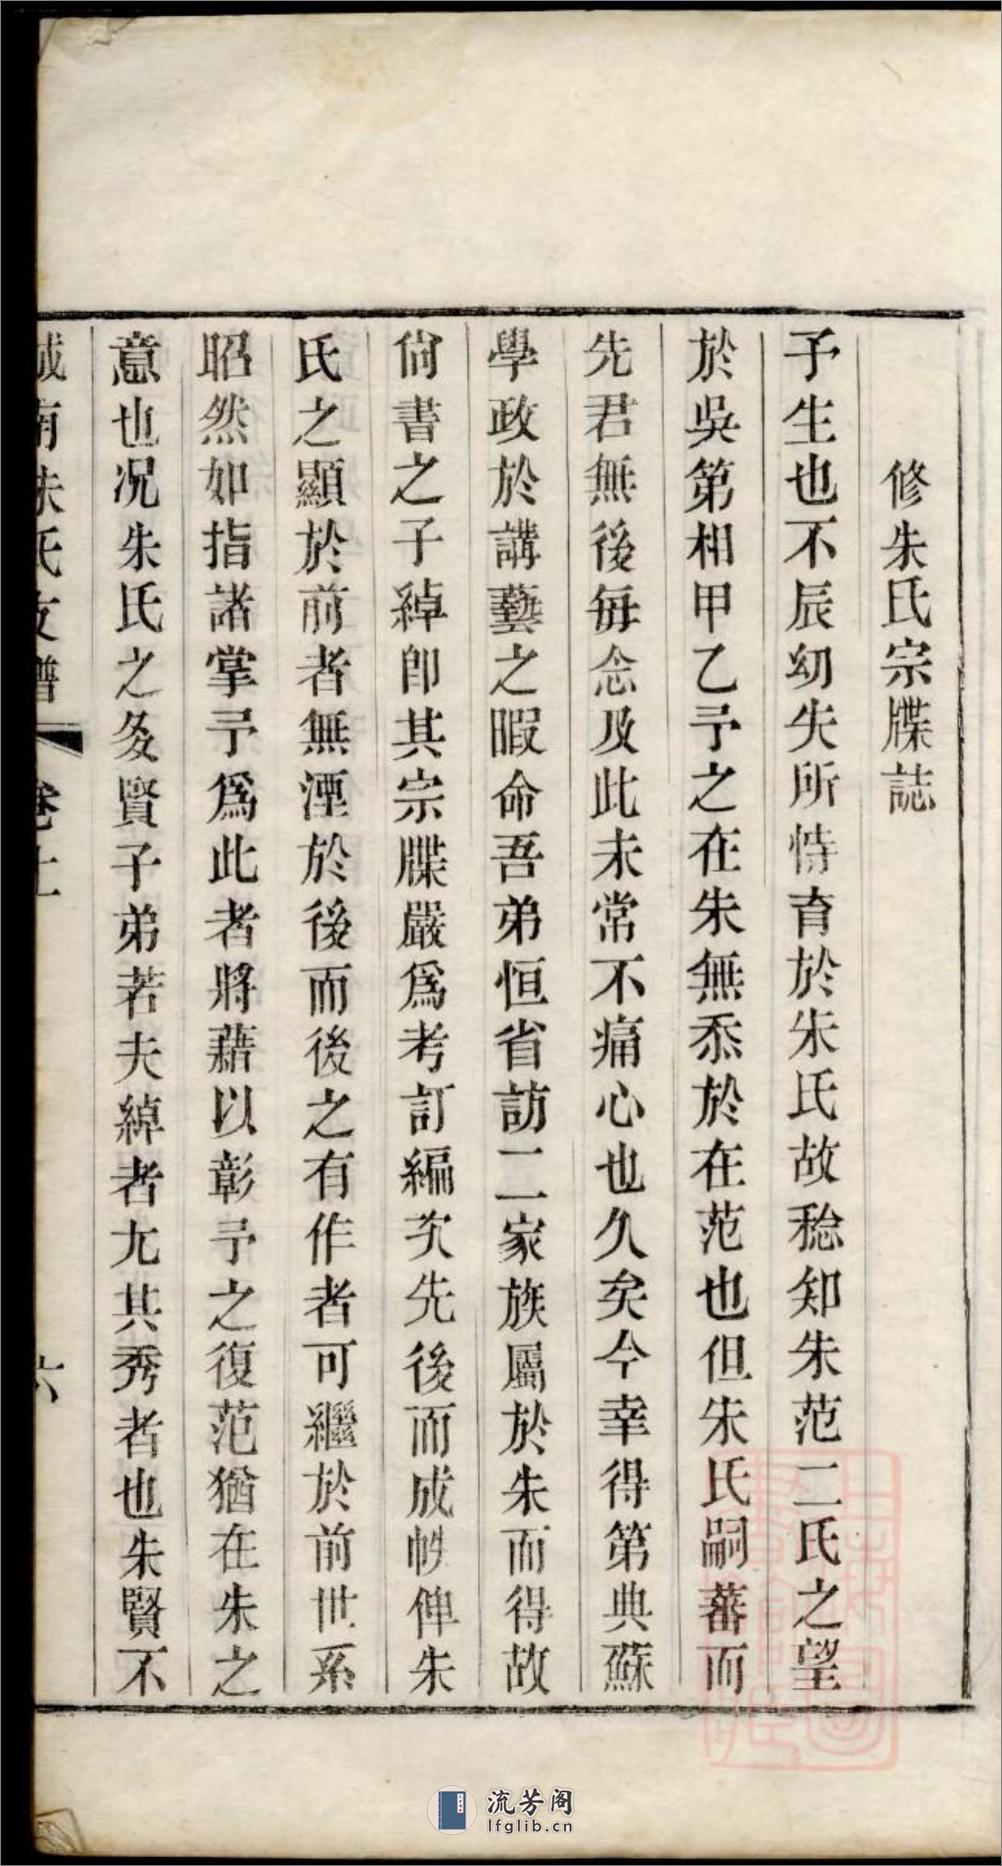 修朱氏宗牒誌
予生也不辰幼失所恃育於朱氏故稔知朱范二氏之望
於吳第相甲乙予之在朱無忝於在范也但朱氏嗣蕃而
先君無後每念及此未常不痛心也久矣今幸得第典蘇
學政於講藝之暇命吾弟恒省訪二家族屬於朱而得故
尙書之子綽卽其宗牒嚴爲考訂編次先後而成帙俾朱
氏之顯於前者無湮於後而後之有作者可繼於前世系
昭然如指諸掌予爲此者將藉以彰予之復范猶在朱之
意也况朱氏之多賢子弟若夫綽者尤其秀者也朱賢不
城南朱氏支譜 卷上 六
流芳阁
lfglib.cn